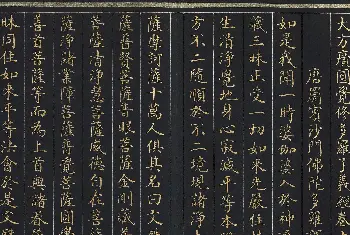 大方廣圓覺修多羅了義經卷
唐罽賓沙門佛陀多羅譯
如是我聞一時婆伽婆入於神通
藏三昧正受一切如來光嚴住持
生清淨覺地身心寂滅平等本際
方不二隨順於不二境現諸淨土
薩摩訶薩十萬人俱其名曰文殊
普賢菩薩普眼菩薩金剛藏菩
菩薩清淨慧菩薩威德自在菩
薩淨諸業障菩薩普覺菩薩圓覺
善首菩薩等而為上首與諸眷
昧同住如來平等法會於是文殊